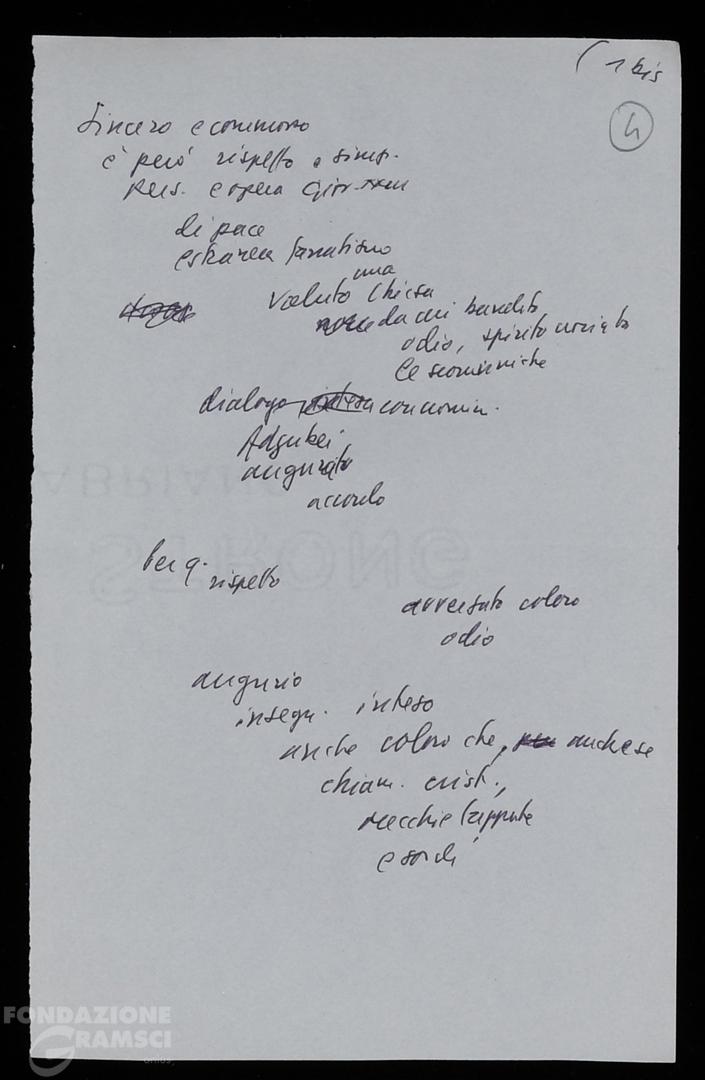 ( 1 bis
4
Sincero e commosso
è però rispetto e simp.
Pers. e opera Giov. XXIII
di pace
estranea fanatismo
una
voluto Chiesa
da cui bandito
odio, spirito crociata
le scomuniche
dialogo con comun.
Adjubei
augurato
accordo
Per q. rispetto
avversato coloro
odio
augurio
insegn. inteso
anche coloro che, anche se
chiam. crist.,
orecchie tappate
e sordi
FONDAZIONE
GRAMSCI
onlus